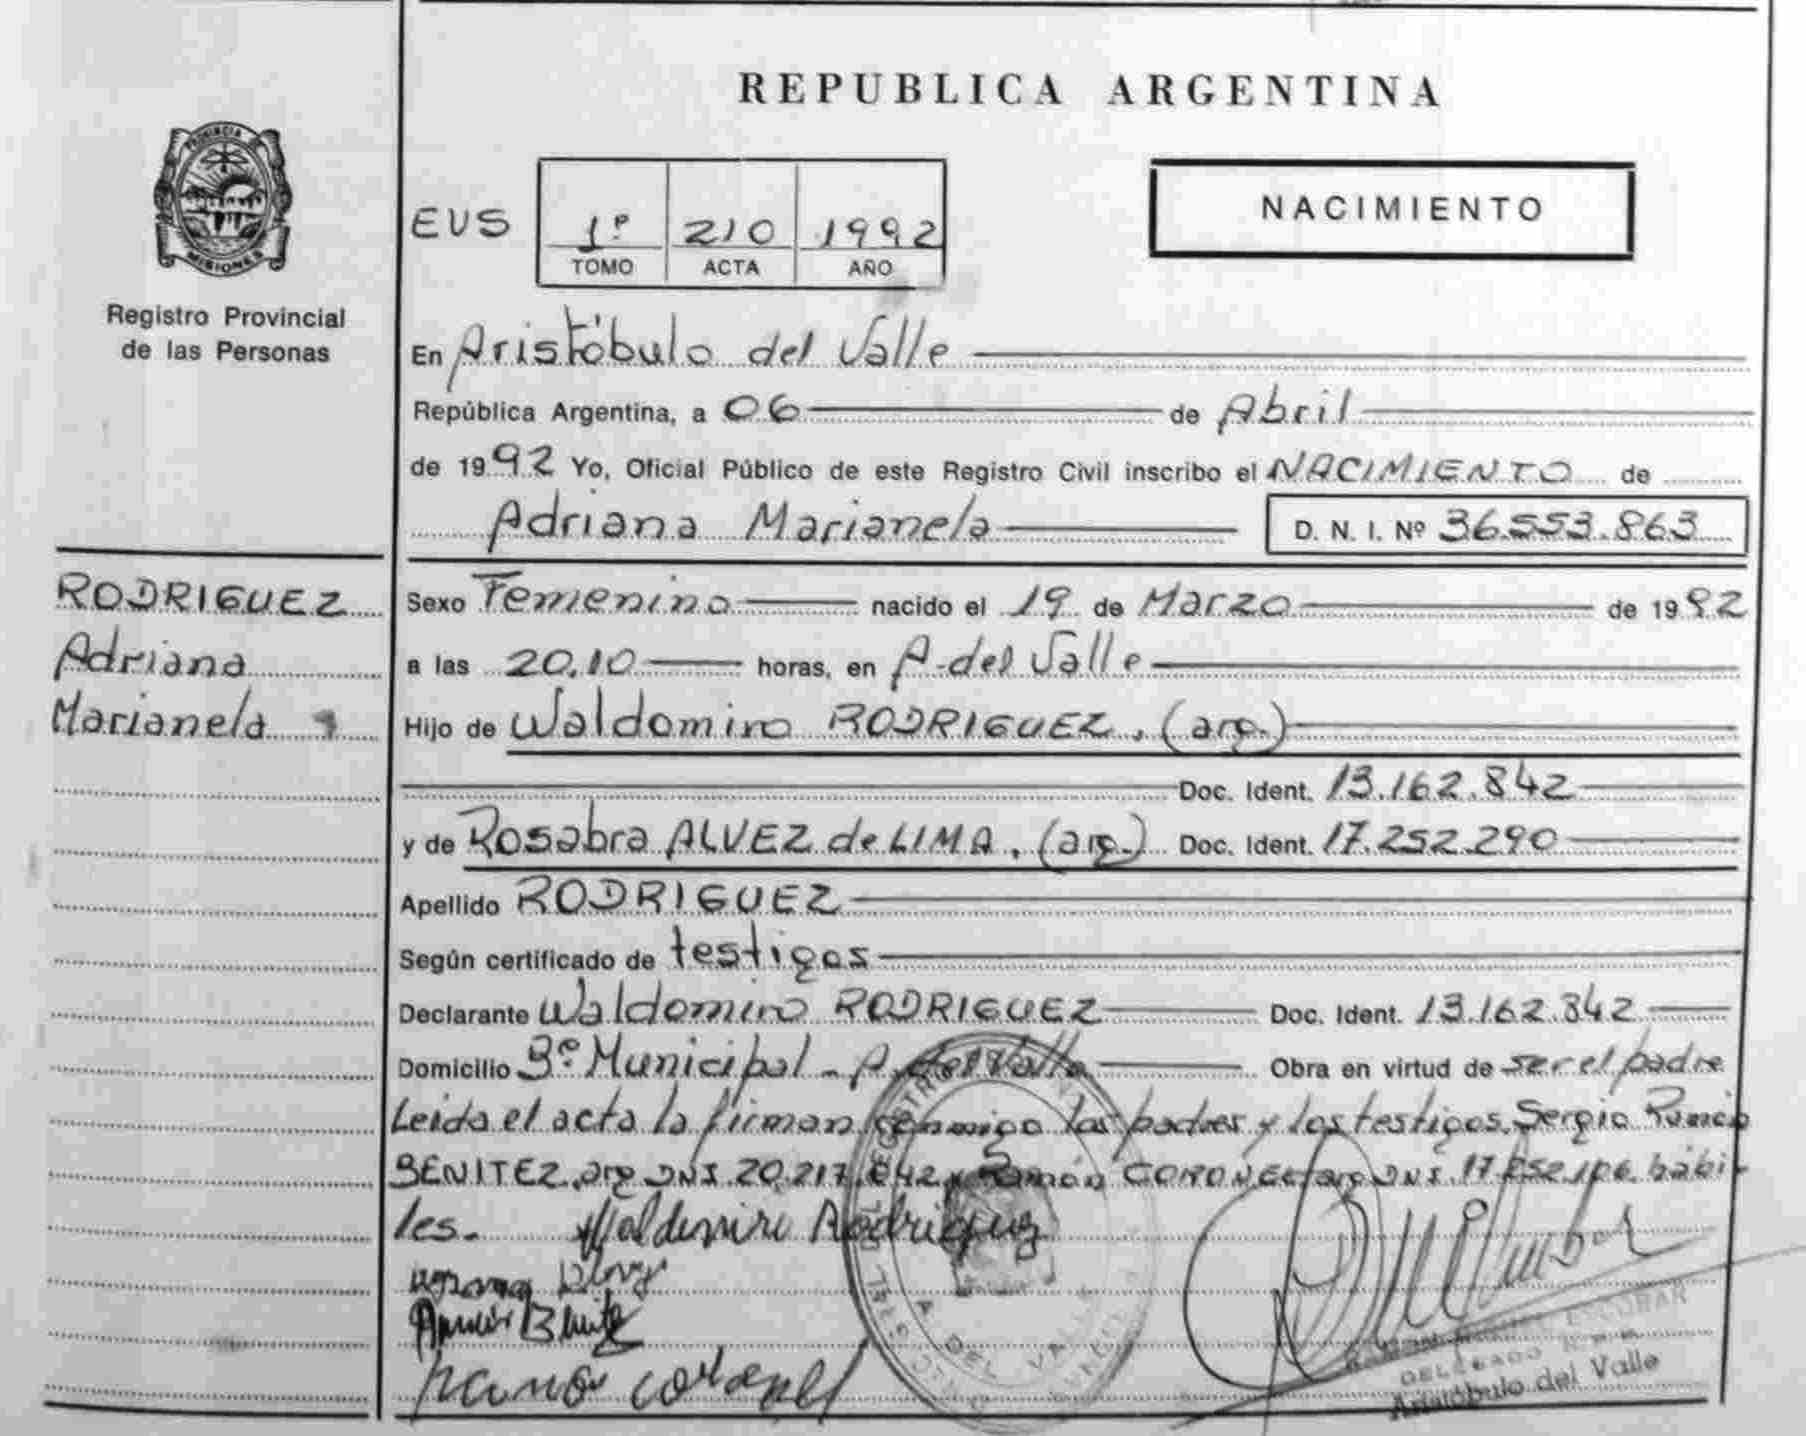 REPUBLICA ARGENTINA
PROVINCIA
MISIONES
Registro Provincial
de las Personas
EUS 1º 210 1992
TOMO ACTA AÑO
NACIMIENTO
En Aristóbulo del Valle
República Argentina, a 06 de Abril
de 1992 Yo, Oficial Público de este Registro Civil inscribo el NACIMIENTO de
Adriana Marianela D. N. I. Nº 36.553.863
RODRIGUEZ
Adriana
Marianela
Sexo Femenino nacido el 19 de Marzo de 1992
a las 20.10 horas, en A. del Valle
Hijo de Waldomiro RODRIGUEZ, (arg.)
Doc. Ident. 13.162.842
y de Rosabra ALVEZ de LIMA, (arg.) Doc. Ident. 17.252.290
Apellido RODRIGUEZ
Según certificado de testigos
Declarante Waldomiro RODRIGUEZ Doc. Ident. 13.162.842
Domicilio Bº Municipal - A. del Valle Obra en virtud de ser el padre
Leida el acta la firman conmigo los padres y los testigos, Sergio Ramón
BENITEZ, arg DNI. 20.217.642 y Ramón CORONEL arg DNI. 17.252.106. hábi-
les. Waldemiro Rodriguez
Ramón Coronel
ESCOBAR
DELEGADO R.P.P.
Aristóbulo del Valle